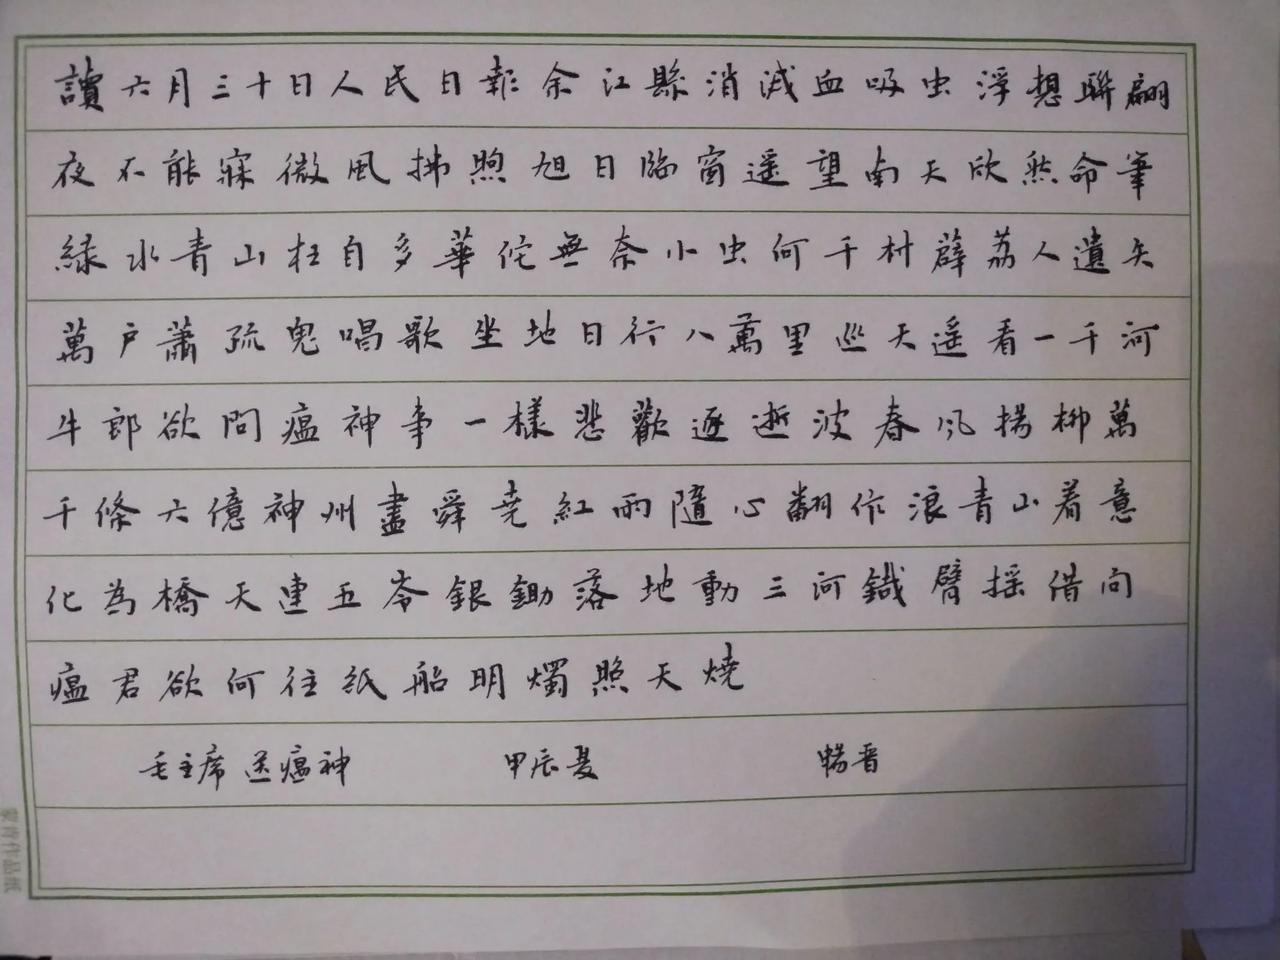 讀六月三十日人民日報余江縣消滅血吸虫浮想聯翩
夜不能寐微風拂煦旭日臨窗遥望南天欣然命筆
緑水青山枉自多華佗無奈小虫何千村薜荔人遺矢
萬户蕭疏鬼唱歌坐地日行八萬里巡天遥看一千河
牛郎欲問瘟神事一樣悲歡逐逝波春風楊柳萬
千條六億神州盡舜尭紅雨隨心翻作浪青山着意
化為橋天連五岺銀鋤落地動三河鐵臂摇借问
瘟君欲何往紙船明燭照天燒
毛主席送瘟神 甲辰夏 暢晋
蒙肯作品纸